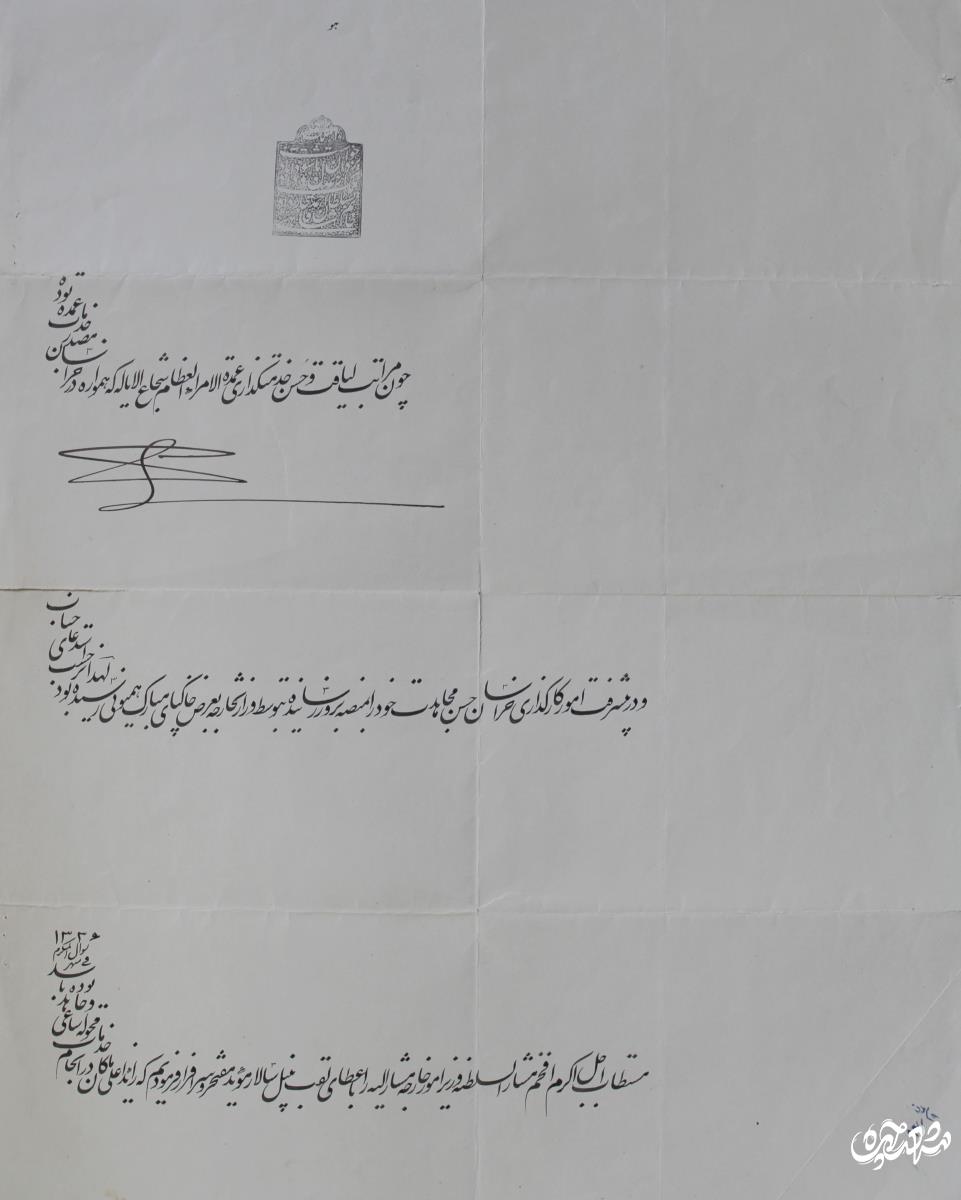 هو
چون مراتب لیاقت و حسن خدمتگذاری عمدة الامراء العظام شجاع الایاله که همواره در خراسان مصدر
خدمات
عمده
بوده
و در پیشرفت امور کارگذاری خراسان حسن مجاهدت خود را بمنصه بروز رسانیده بتوسط وزارتخارجه بعرض خاکپای مبارک همیونی رسیده بود
لهذا بر حسب
استدعای
جناب
مستطاب اجل اکرم افخم مشار السلطنه وزیر امور خارجه مشار الیه را باعطای لقب نبیل سالار مؤید مفتخر و سرافراز فرمودیم که زائداً علی ماکان در انجام
خدمات
محوله ساعی
و جاهد
بوده با
شد
فی شهر
شوال المکرم
۱۳۳۶